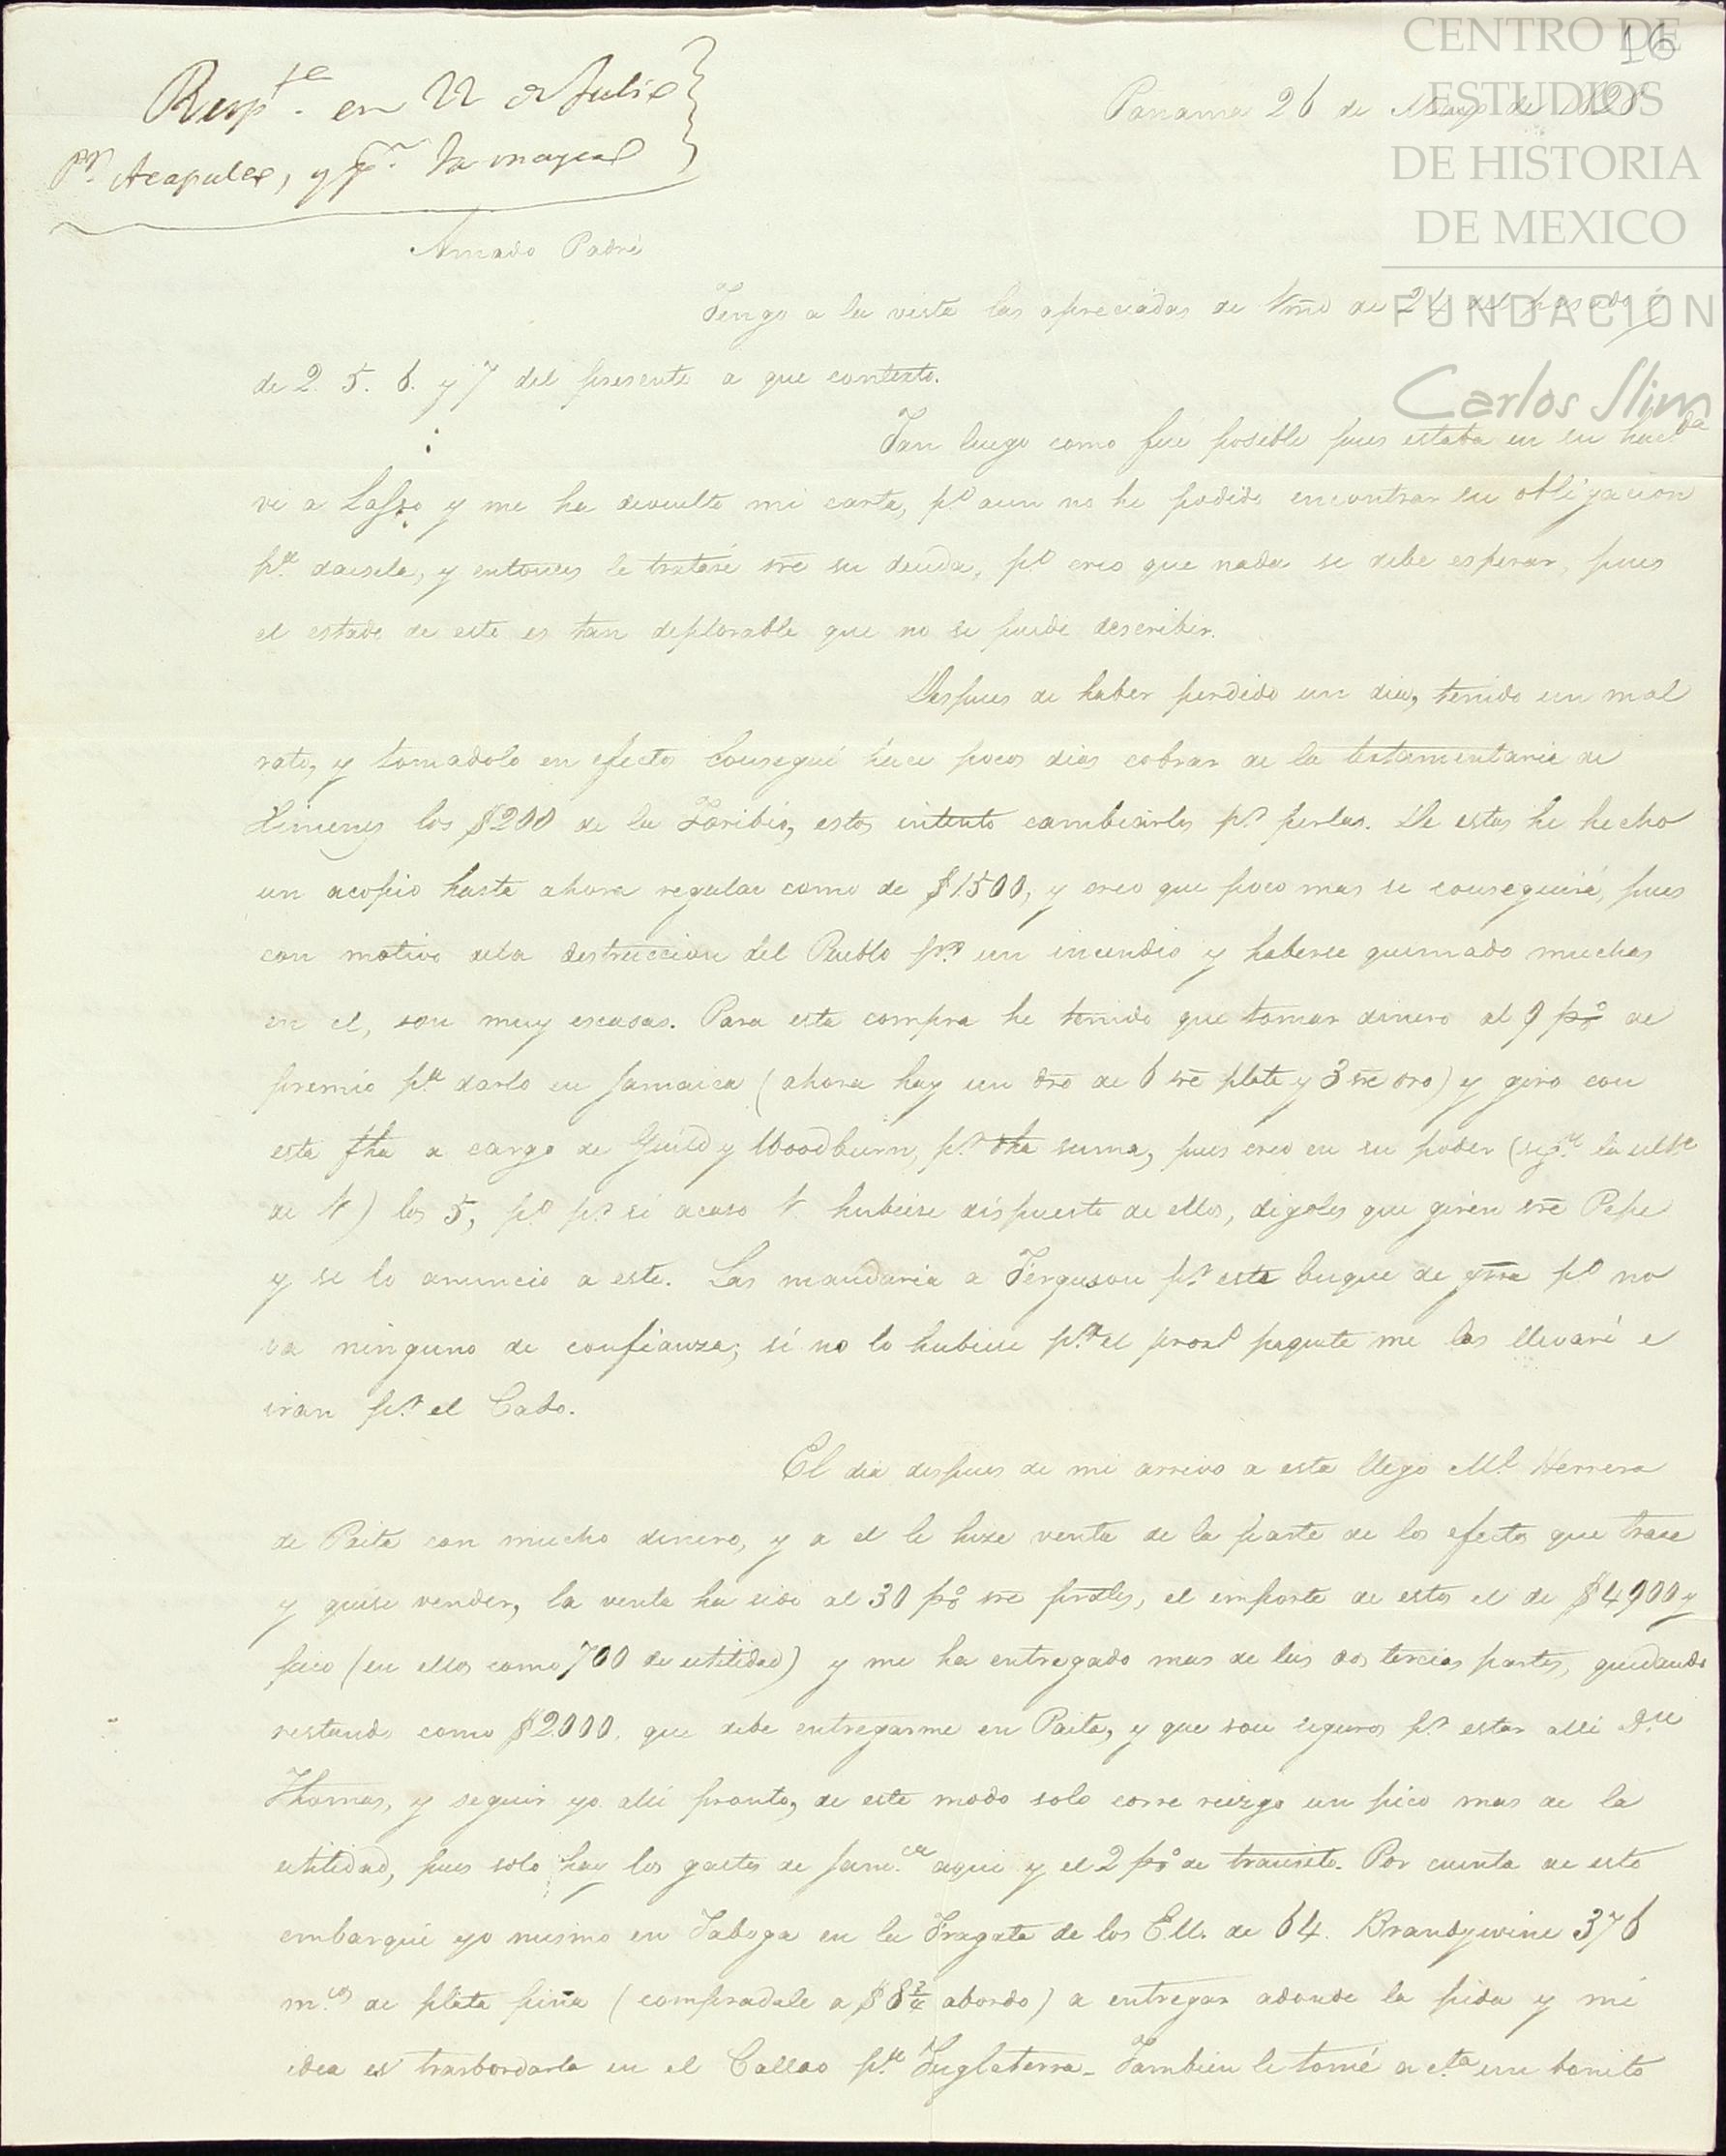 16
CENTRO DE
ESTUDIOS
DE HISTORIA
DE MEXICO
FUNDACIÓN
Carlos Slim
Resp.te en 22 de Julio
pr. Acapulco, y pr.
Panama 26 de Mayo de 1828
Amado Padre
Tengo a la vista las apreciadas de Vmd de 24 del pasado y
de 2. 5. 6. y 7 del presente a que contexto.
Tan luego como fue posible pues estaba en su hac.da
vi a Lasso y me ha devuelto mi carta, po. aun no he podido encontrar su obligacion
pa. darsela, y entonces le trataré sre su deuda, po. creo que nada se debe esperar, pues
el estado de este es tan deplorable que no se puede describir.
Despues de haber perdido un dia, tenido un mal
rato, y tomadolo en efectos consegui hace pocos dias cobrar de la testamentaria de
Ximenes los $200 de la Toribio, estos intento cambiarlos pr. perlas. De estas he hecho
un acopio hasta ahora regular como de $1500, y creo que poco mas se conseguirá, pues
con motivo dela destruccion del Pueblo pr. un incendio y haberse quemado muchas
en el, son muy escasas. Para esta compra he tenido que tomar dinero al 9 p% de
premio pa. darlo en Jamaica (ahora hay un dro de 6 sre plata y 3 sre oro) y giro con
esta fha a cargo de Guild y Woodburn, pr. dha suma, pues creo en su poder (seg.n la ult.a
de V) los 5, po. pr. si acaso V hubiese dispuesto de ellos, digoles que giren sre Pepe
y se lo anuncio a este. Las mandaria a Ferguson pr. este buque de grra po. no
va ninguno de confianza; si no lo hubiese pr. el prox.o paquete me las llevaré e
iran pr. el Cabo.
El dia despues de mi arrivo a esta llego Ml. Herrera
de Paita con mucho dinero, y a el le hize venta de la parte de los efectos que traxe
y quise vender, la venta ha sido al 30 p% sre prales, el importe de estos el de $4900 y
pico (en ellos como 700 de utilidad) y me ha entregado mas de las dos tercias partes, quedando
restando como $2000. que debe entregarme en Paita, y que son seguros pr. estar alli Dn
Thomas, y seguir yo alli pronto, de este modo solo corre riezgo un pico mas de la
utilidad, pues solo hay los gastos de Jam.ca aqui y el 2 p% de transito. Por cuenta de esto
embarqué yo mismo en Taboga en la Fragata de los E.U. de 64. Brandywine 376
m.cos de plata piña (compradale a $8 2/4 abordo) a entregar adonde la pida y mi
idea es trasbordarla en el Callao pa. Inglaterra_ Tambien le tomé a cta un bonito